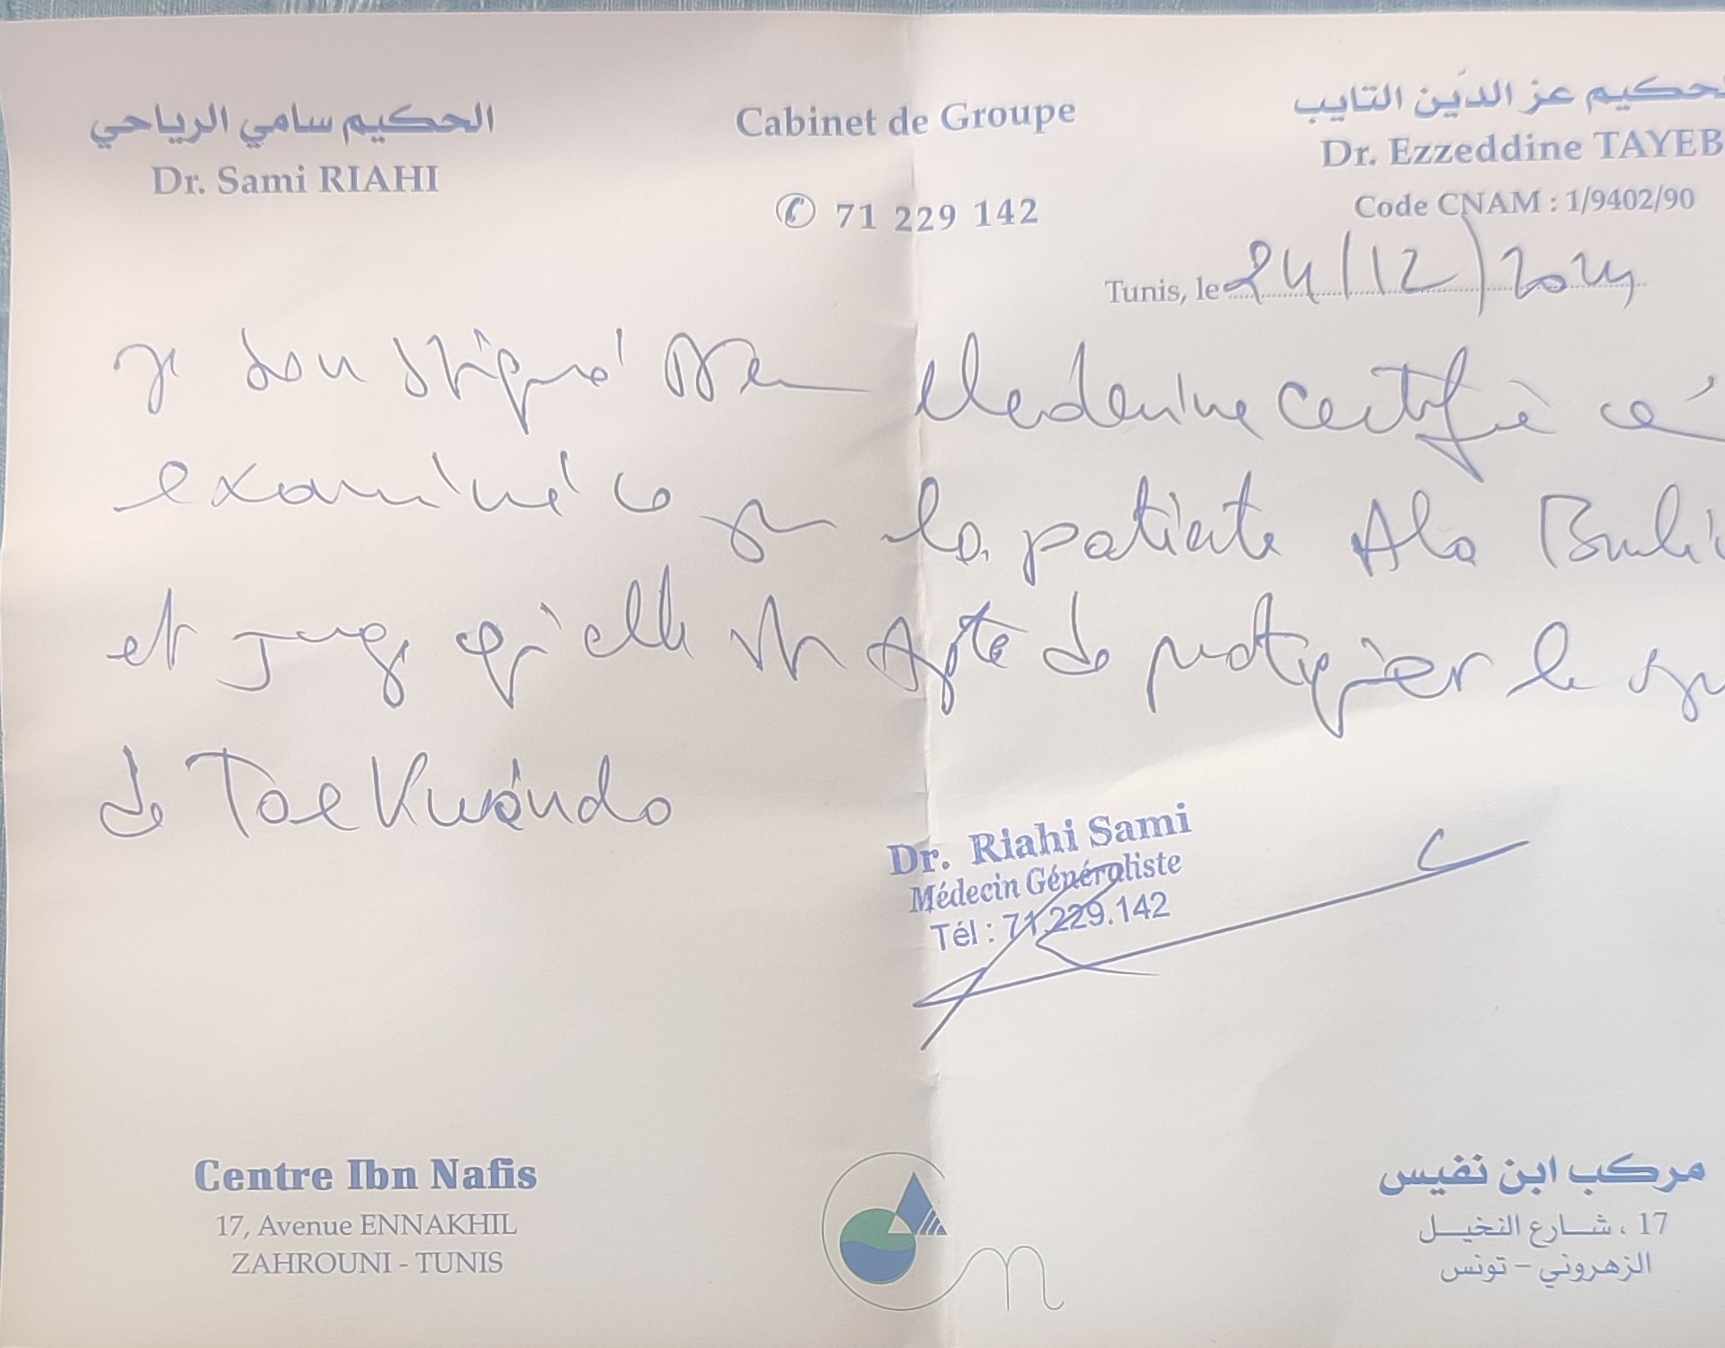 الحكيم سامي الرياحي
Dr. Sami RIAHI
Cabinet de Groupe
✆ 71 229 142
الحكيم عز الدين التايب
Dr. Ezzeddine TAYEB
Code CNAM : 1/9402/90
Tunis, le 24/12/2024
je soussigné Dr en Medecine certifie
examiné ce jour la patiente Ala
et juge qu'elle est Apte de pratiquer le
de Taekwondo
Dr. Riahi Sami
Médecin Généraliste
Tél : 71.229.142
Centre Ibn Nafis
17, Avenue ENNAKHIL
ZAHROUNI - TUNIS
مركب ابن نفيس
17 ، شارع النخيل
الزهروني - تونس